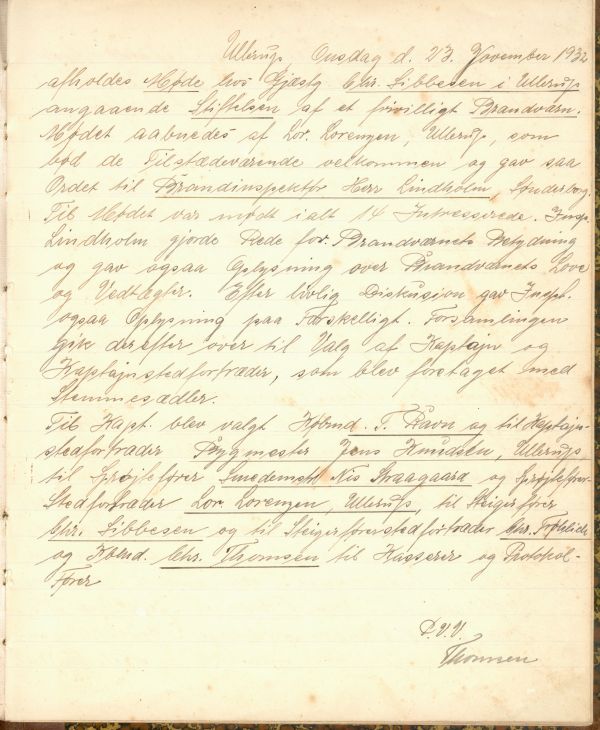 Ullerup, Onsdag d. 23. November 1932
afholdes Møde hos Gjæstg Chr. Sibbesen i Ullerup
angaaende Stiftelsen af et frivilligt Brandværn.
Mødet aabnedes af Lor. Lorenzen, Ullerup, som
bød de Tilstædeværende velkommen og gav saa
Ordet til Brandinspektør Herr Lindholm, Sønderborg.
Til Mødet var mødt ialt 14 Intresserede. Insp.
Lindholm gjorde Rede for Brandværnets Betydning
og gav ogsaa Oplysning over Brandværnets Love
og Vedtægter. Efter livlig Diskusion gav Inspt.
ogsaa Oplysning paa Forskelligt. Forsamlingen
gik derefter over til Valg af Kaptajn og
Kaptajnstedfortræder, som blev foretaget med
Stemmesædler.
Til Kapt. blev valgt Købmd. T. Ravn og til Kaptajn-
stedfortræder Bygmester Jens Knudsen, Ullerup
til Sprøjtefører Smedemstr Nis Kraagaard og Sprøjtefører-
Stedfortræder Lor. Lorenzen, Ullerup, til Steigerfører
Chr. Sibbesen og til Steigerførerstedfortræder Chr. Frölich
og Købmd. Chr. Thomsen til Kasserer og Protokol-
Fører
P.V.V.
Thomsen